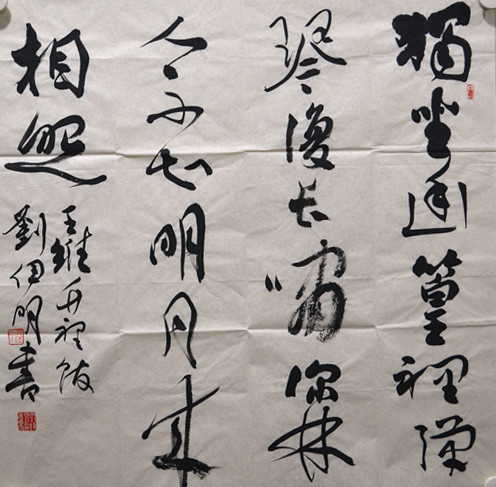 獨坐幽篁裡彈
琴復長嘯深林
人不知明月來
相照
王維竹裡館
劉伊明書